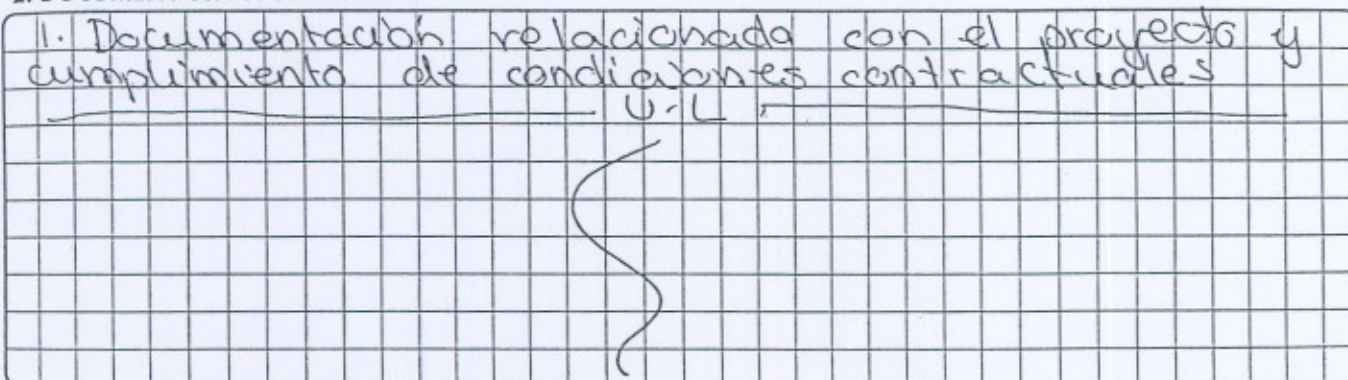 1. Documentación relacionada con el proyecto y
cumplimiento de condiciones contractuales
U.L